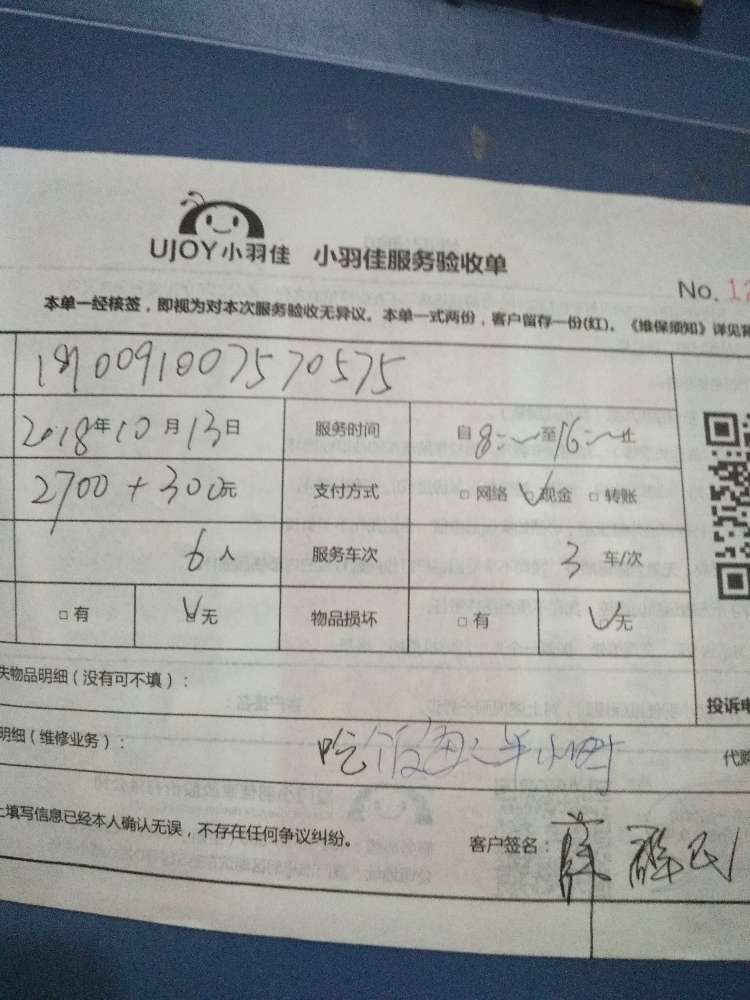 UJOY小羽佳 小羽佳服务验收单
No. 12
本单一经核签，即视为对本次服务验收无异议。本单一式两份，客户留存一份(红)。《维保须知》详见背
18100910075 70575
2018年10月13日 服务时间 自8:~至16:~止
2700+300元 支付方式 □网络 ☑现金 □转账
6人 服务车次 3车/次
□有 ☑无 物品损坏 □有 ☑无
失物品明细（没有可不填）： 投诉电
明细（维修业务）： 吃饭 半小时 代购
上填写信息已经本人确认无误，不存在任何争议纠纷。 客户签名：